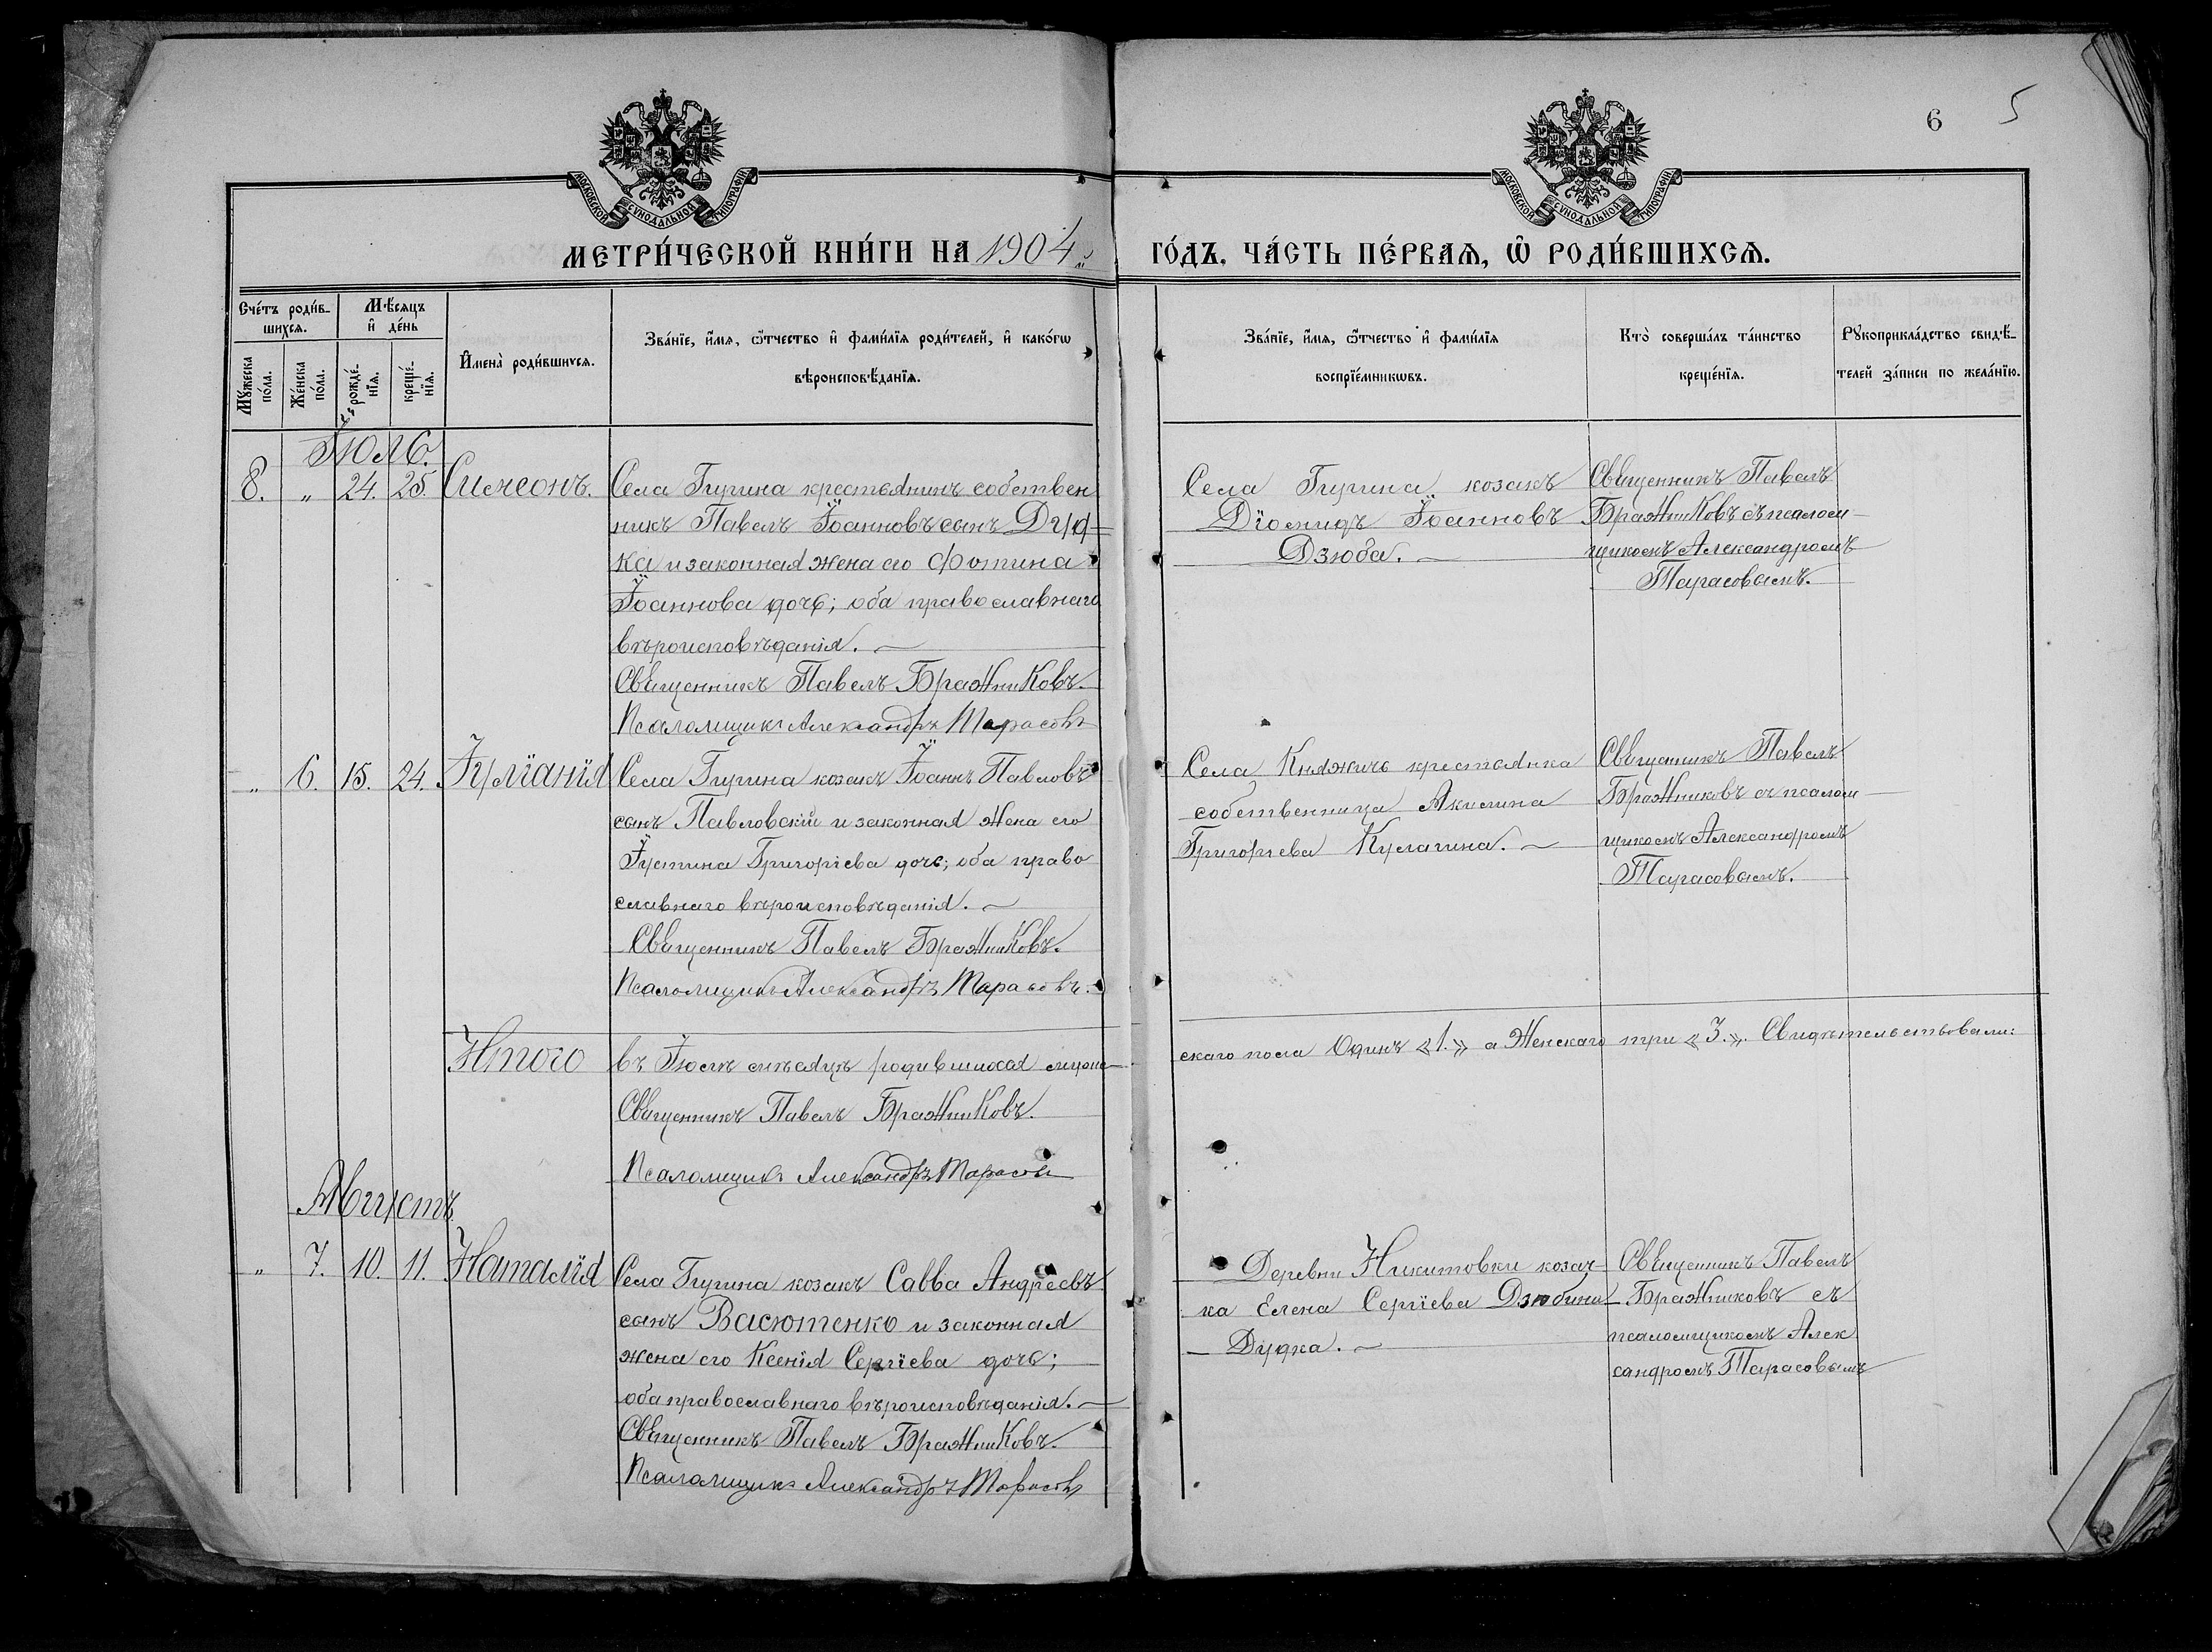 6
5
МОСКОВСКОЙ СУНОДАЛЬНОЙ ТИПОГРАФІИ
МОСКОВСКОЙ СУНОДАЛЬНОЙ ТИПОГРАФІИ
МЕТРИ́ЧЕСКОЙ КНИ́ГИ НА 1904 й
ГО́ДЪ, ЧА́СТЬ ПЕ́РВАѦ, Ѡ҆ РОДИ́ВШИХСѦ.
Сче́тъ роди́в-
шихсѧ.
Мꙋ́жеска по́ла.
Же́нска по́ла.
Мѣ́сѧцъ
и҆ де́нь
рожде́-
нїѧ.
креще́-
нїѧ.
И҆мена̀ роди́вшихсѧ.
Зва́нїе, и҆́мѧ, ѻ҆́тчество и҆ фами́лїѧ роди́телей, и҆ како́гѡ
вѣроисповѣ́данїѧ.
Зва́нїе, и҆́мѧ, ѻ҆́тчество и҆ фами́лїѧ
воспрїе́мникѡвъ.
Кто̀ соверша́лъ та́инство
креще́нїѧ.
Рꙋкоприкла́дство свидѣ́-
телей за́писи по жела́нїю.
Іюль.
8. „ 24. 25. Симеонъ.
Села Гирина крестьянинъ собствен
никъ Павелъ Іоанновъ сынъ Дуд-
ка и законная жена его Фотина
Іоаннова дочь; оба православнаго
вѣроисповѣданія.
Священникъ Павелъ Бражниковъ.
Псаломщикъ Александръ Тарасовъ
Села Гирина козакъ
Діомидъ Іоанновъ
Дзюба.
Священникъ Павелъ
Бражниковъ съ псалом-
щикомъ Александромъ
Тарасовымъ.
„ 6. 15. 24. Іуліанія
Села Гирина козакъ Іоаннъ Павловъ
сынъ Павловскій и законная жена его
Іустина Григоріева дочь; оба право
славнаго вѣроисповѣданія.
Священникъ Павелъ Бражниковъ.
Псаломщикъ Александръ Тарасовъ.
Села Княжичь крестьянка
собственница Акилина
Григоріева Кулагина.
Священникъ Павелъ
Бражниковъ съ псалом-
щикомъ Александромъ
Тарасовымъ.
Итого
въ Іюлѣ мѣсяцѣ родившихся мужe-
скаго пола Одинъ «1.» а Женскаго три «3.». Свидѣтельствовали:
Священникъ Павелъ Бражниковъ.
Псаломщикъ Александръ Тарасовъ
Августъ.
„ 7. 10. 11. Наталія
Села Гирина козакъ Савва Андреевъ
сынъ Васютенко и законная
жена его Ксенія Сергіева дочь;
оба православнаго вѣроисповѣданія.
Священникъ Павелъ Бражниковъ.
Псаломщикъ Александръ Тарасовъ
Деревни Никитовки козач-
ка Елена Сергіева Дзюбина-
Дудка.
Священникъ Павелъ
Бражниковъ съ
псаломщикомъ Алек
сандромъ Тарасовымъ